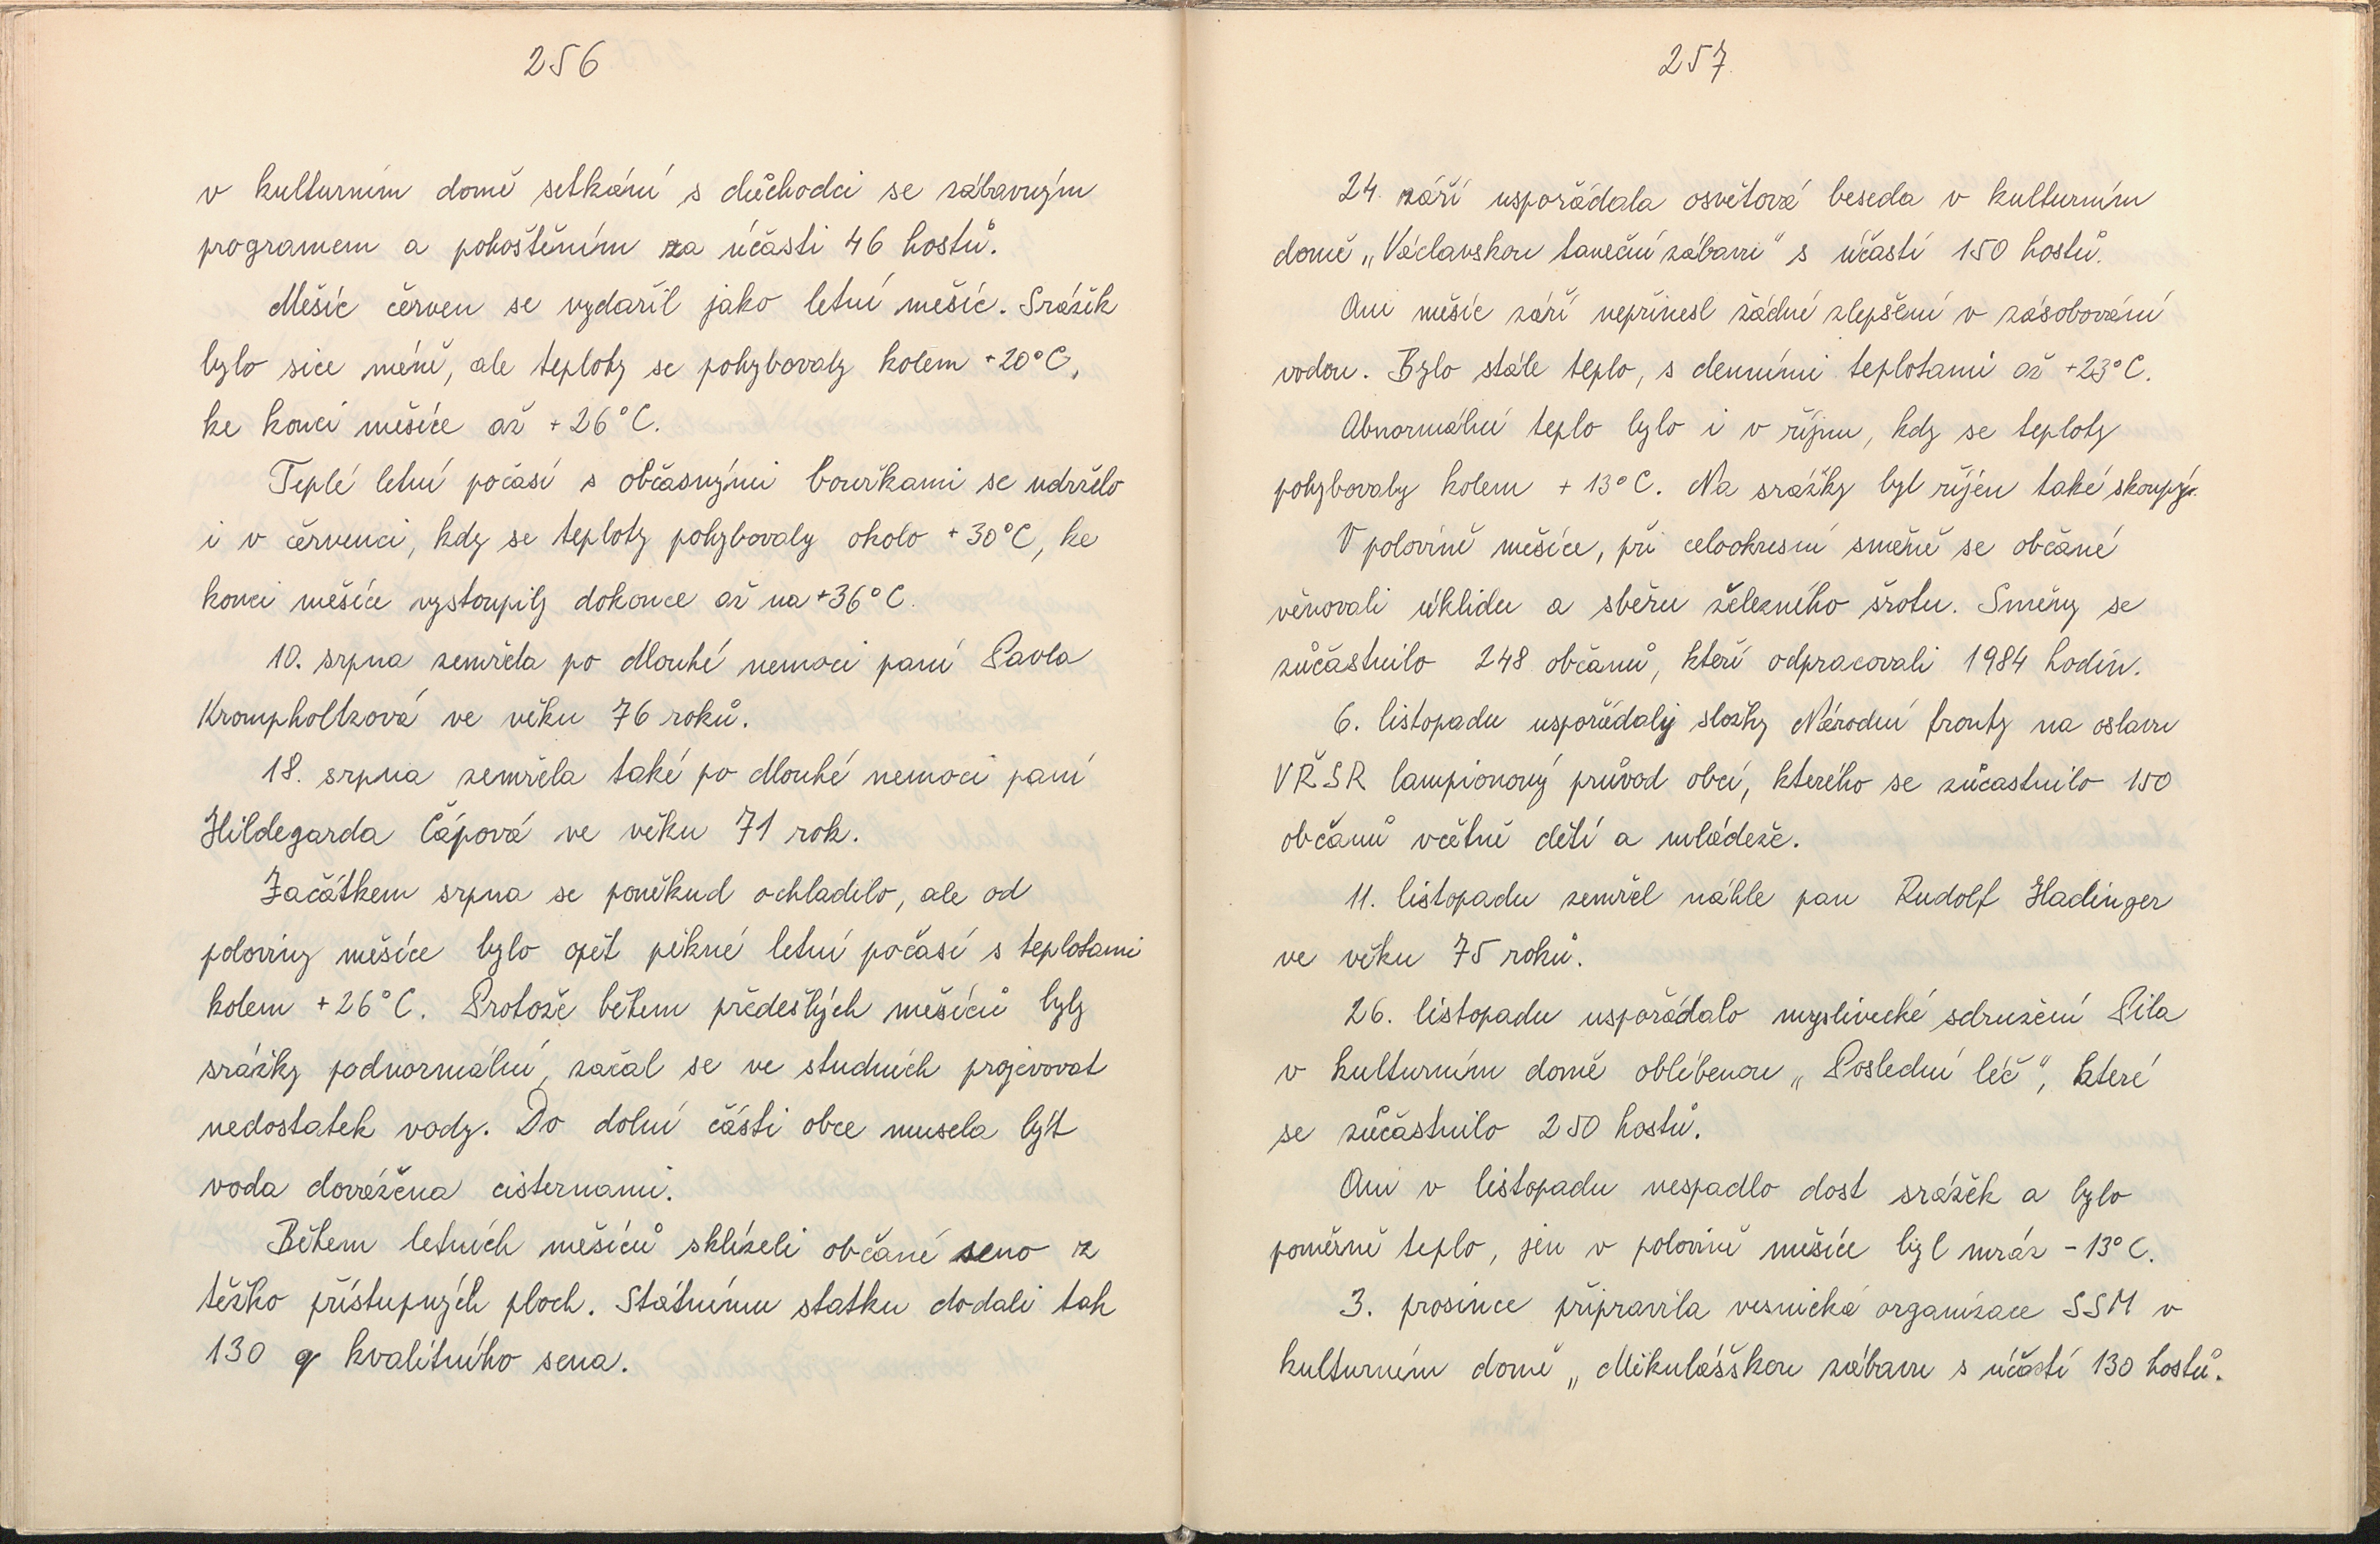 256
v kulturním domě setkání s důchodci se zábavným
programem a pohoštěním za účasti 46 hostů.
Měsíc červen se vydařil jako letní měsíc. Srážek
bylo sice méně, ale teploty se pohybovaly kolem +20°C,
ke konci měsíce až +26°C.
Teplé letní počasí s občasnými bouřkami se udrželo
i v červenci, kdy se teploty pohybovaly okolo +30°C, ke
konci měsíce vystoupily dokonce až na +36°C.
10. srpna zemřela po dlouhé nemoci paní Pavla
Krompholtzová ve věku 76 roků.
18. srpna zemřela také po dlouhé nemoci paní
Hildegarda Čápová ve věku 71 rok.
Začátkem srpna se poněkud ochladilo, ale od
poloviny měsíce bylo opět pěkné letní počasí s teplotami
kolem +26°C. Protože během předešlých měsíců byly
srážky podnormální, začal se ve studních projevovat
nedostatek vody. Do dolní části obce musela být
voda dovážena cisternami.
Během letních měsíců sklízeli občané seno z
těžko přístupných ploch. Státnímu statku dodali tak
130 q kvalitního sena.
257
24. září uspořádala osvětová beseda v kulturním
domě „Václavskou taneční zábavu" s účastí 150 hostů.
Ani měsíc září nepřinesl žádné zlepšení v zásobování
vodou. Bylo stále teplo, s denními teplotami až +23°C.
Abnormální teplo bylo i v říjnu, kdy se teploty
pohybovaly kolem +13°C. Na srážky byl říjen také skoupý.
V polovině měsíce, při celookresní směně se občané
věnovali úklidu a sběru železného šrotu. Směny se
zúčastnilo 248 občanů, kteří odpracovali 1984 hodin.
6. listopadu uspořádaly složky Národní fronty na oslavu
VŘSR lampionový průvod obcí, kterého se zúčastnilo 150
občanů včetně dětí a mládeže.
11. listopadu zemřel náhle pan Rudolf Hadinger
ve věku 75 roků.
26. listopadu uspořádalo myslivecké sdružení Pila
v kulturním domě oblíbenou „Poslední leč", které
se zúčastnilo 250 hostů.
Ani v listopadu nespadlo dost srážek a bylo
poměrně teplo, jen v polovině měsíce byl mráz -13°C.
3. prosince připravila vesnická organizace SSM v
kulturním domě „Mikulášskou zábavu s účastí 130 hostů.